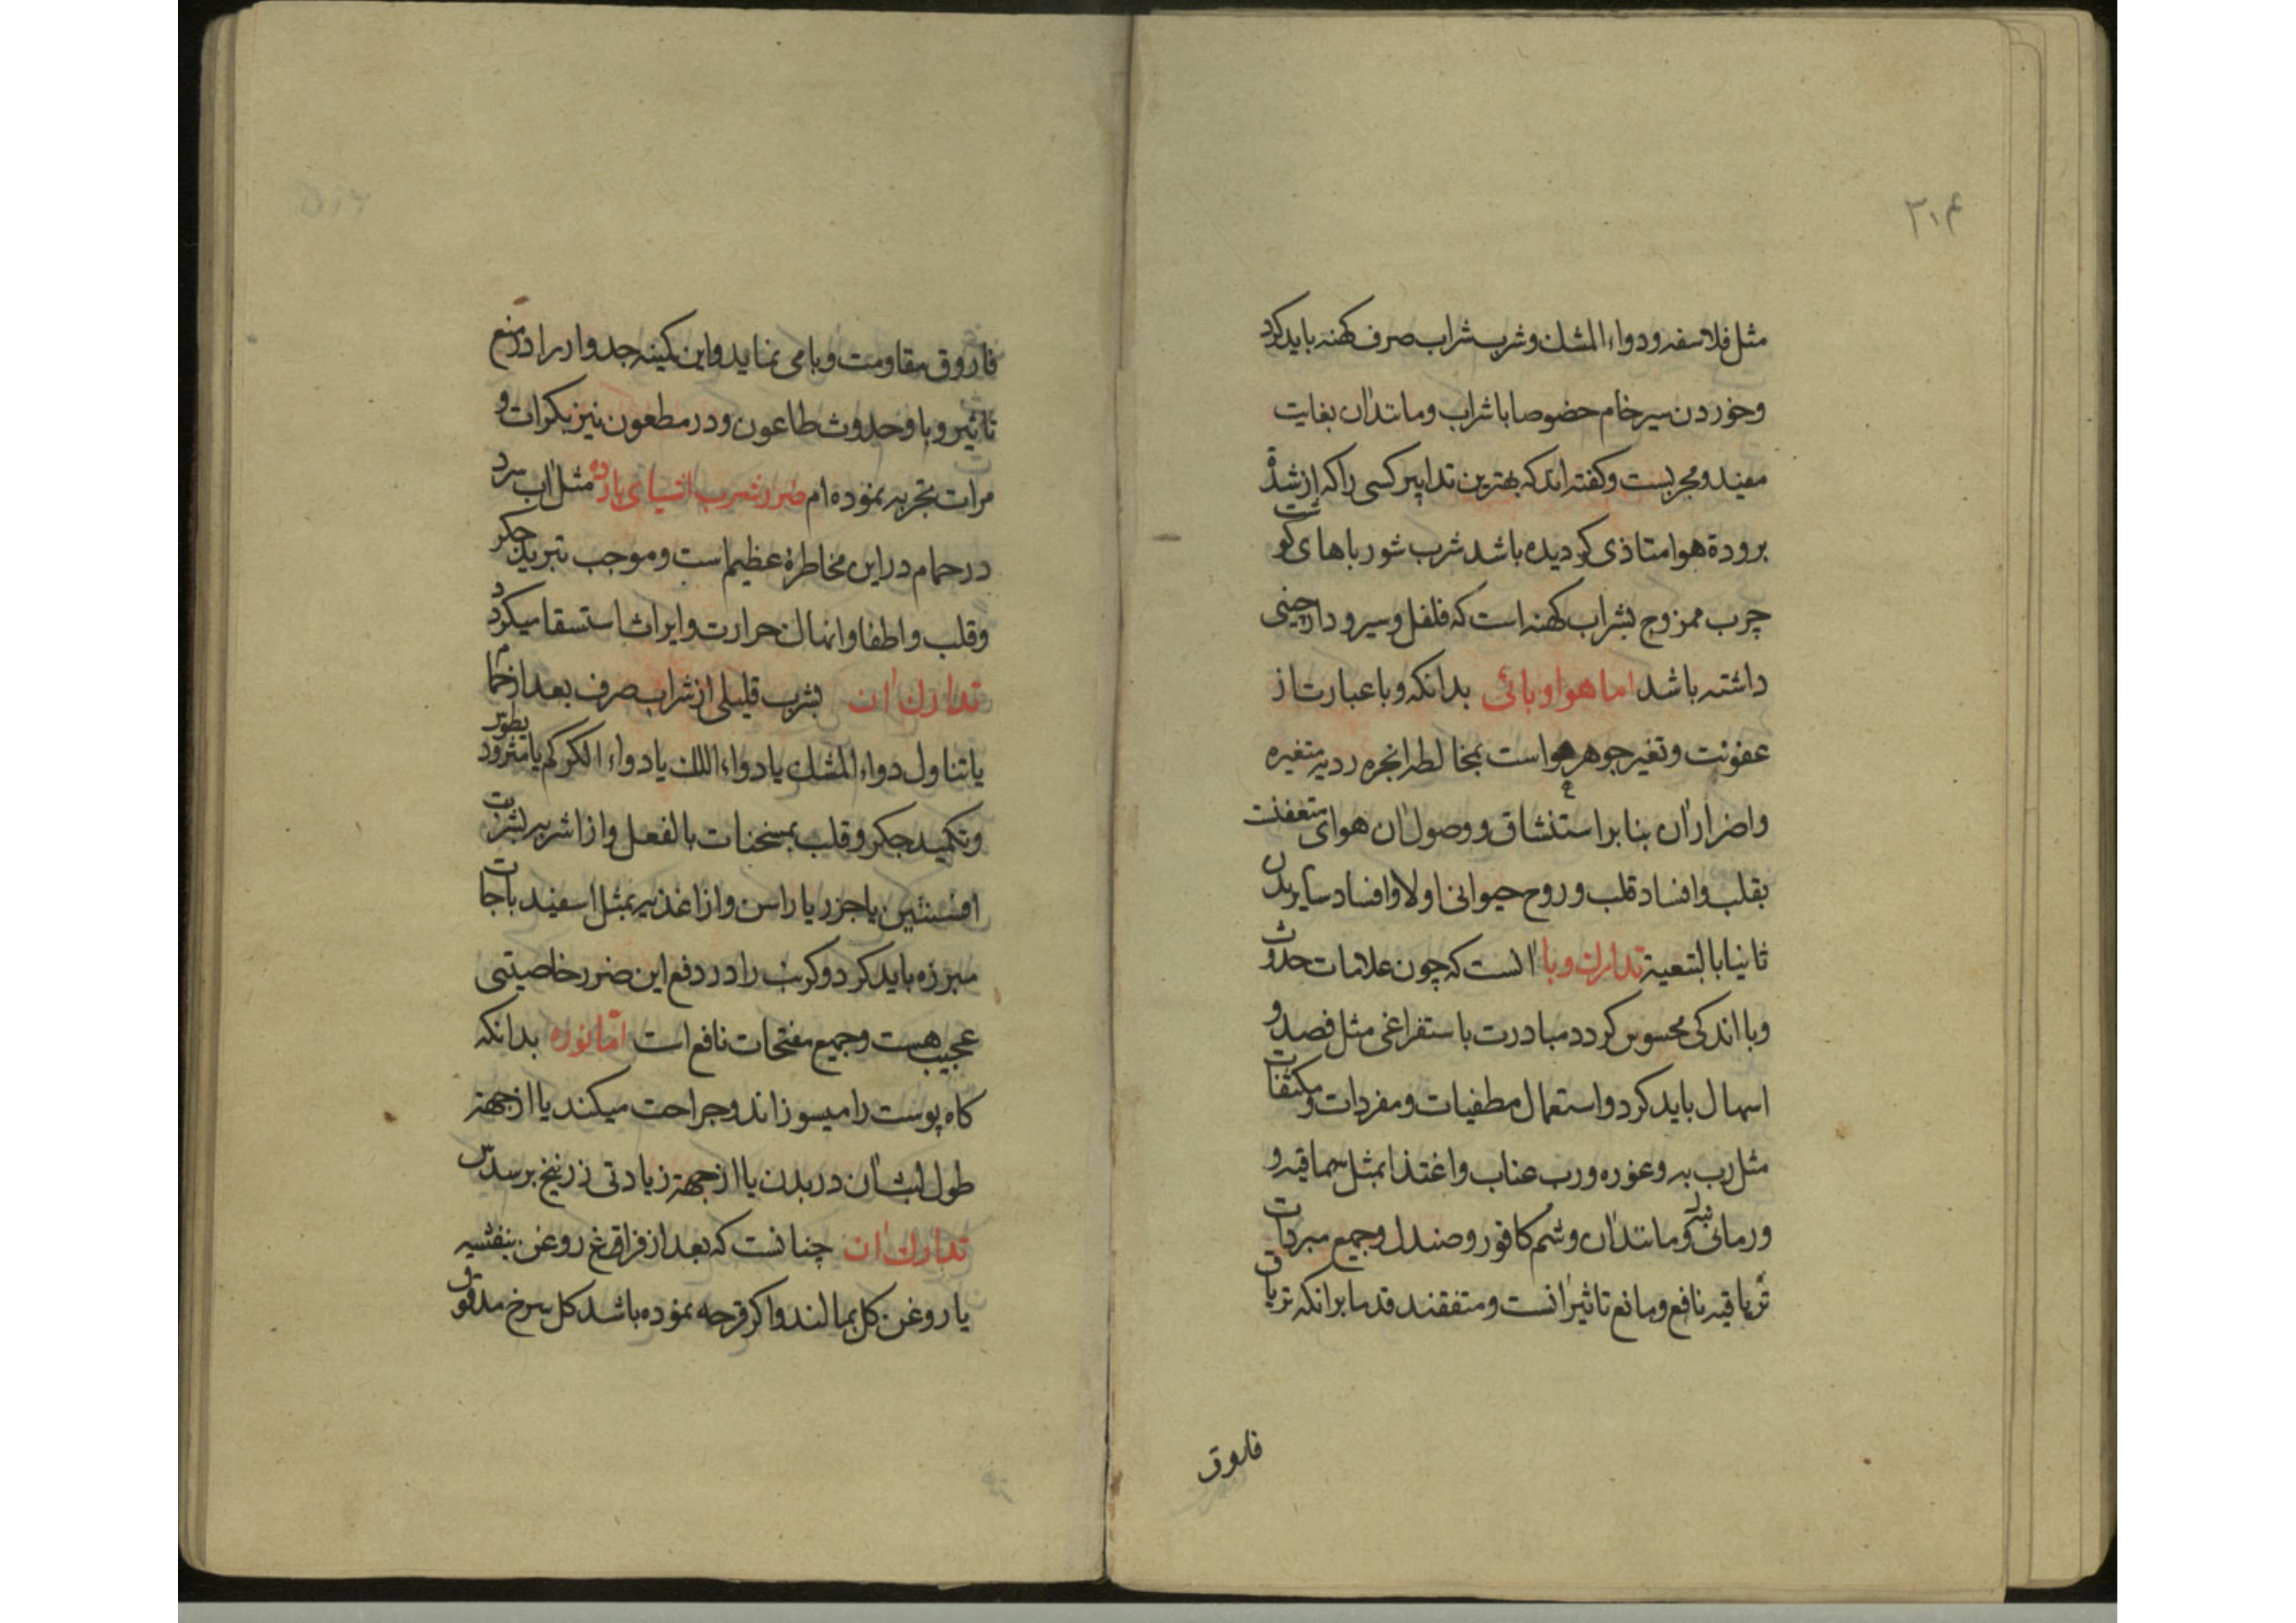 ۳۱۴
مثل فلاسفه و دواء المشک و شرب شراب صرف کهنه باید کرد
و خوردن سیر خام خصوصا با شراب و مانند ان بغایت
مفید و مجربست و کفته اند که بهترین تدابیر کسی را که از شدة
برودة هوا متاذی کردیده باشد شرب شورباهای کوشت
چرب ممزوج بشراب کهنه است که فلفل و سیر و دارچینی
داشته باشد اما هوا وبائی بدانکه وبا عبارت از
عفونت و تغیر جوهر هواست بمخالطه ابخره ردیه متغیره
و اضرار ان بنا بر استنشاق و وصول ان هوای متعفنت
بقلب و افساد قلب و روح حیوانی اولا و افساد سایر بدن
ثانیا بالتبعیة تدارک وبا انست که چون علامات حدوث
وبا اندکی محسوس کردد مبادرت باستفراغی مثل فصد و
اسهال باید کرد و استعمال مطفیات و مفردات و مکثفات
مثل رب به و غوره و رب عناب و اغتذا بمثل سماقیه و
و رمانی و مانند ان و شم کافور و صندل و جمیع مبردات
تریاقیه نافع و مانع تاثیر انست و متفقند قدما بر انکه تریاق
فاروق
فاروق مقاومت وبا می نماید و این کمینه جدوار را در منع
تاثیر وبا و حدوث طاعون و در مطعون نیز بکرات و
مرات تجربه نموده ام ضرر شرب اشیای بارده مثل اب سرد
در حمام در این مخاطرۀ عظیم است و موجب تبرید جکر
و قلب و اطفا و انهال حرارت و ایراث استسقا میکردد
تدارک ان بشرب قلیلی از شراب صرف بعد از حمام
یا تناول دواء المشک یا دواء اللک یا دواء الکرکم یا مثرودیطوس
و تکمید جکر و قلب بمسخنات بالفعل و از اشربه بشربت
افسنتین یا جزر یا راسن و از اغذیه بمثل اسفیدباجات
مبرزه باید کرد و کرنب را در دفع این ضرر خاصیتی
عجیب هست و جمیع مفتحات نافع است امّا نوره بدانکه
کاه پوست را میسوزاند و جراحت میکند یا از جهة
طول لبث ان در بدن یا از جهة زیادتی زرنیخ برسدس
تدارک ان چنانست که بعد از فراغ روغن بنفشیه
یا روغن کل بمالند و اکر قرحه نموده باشد کل سرخ مدقوق